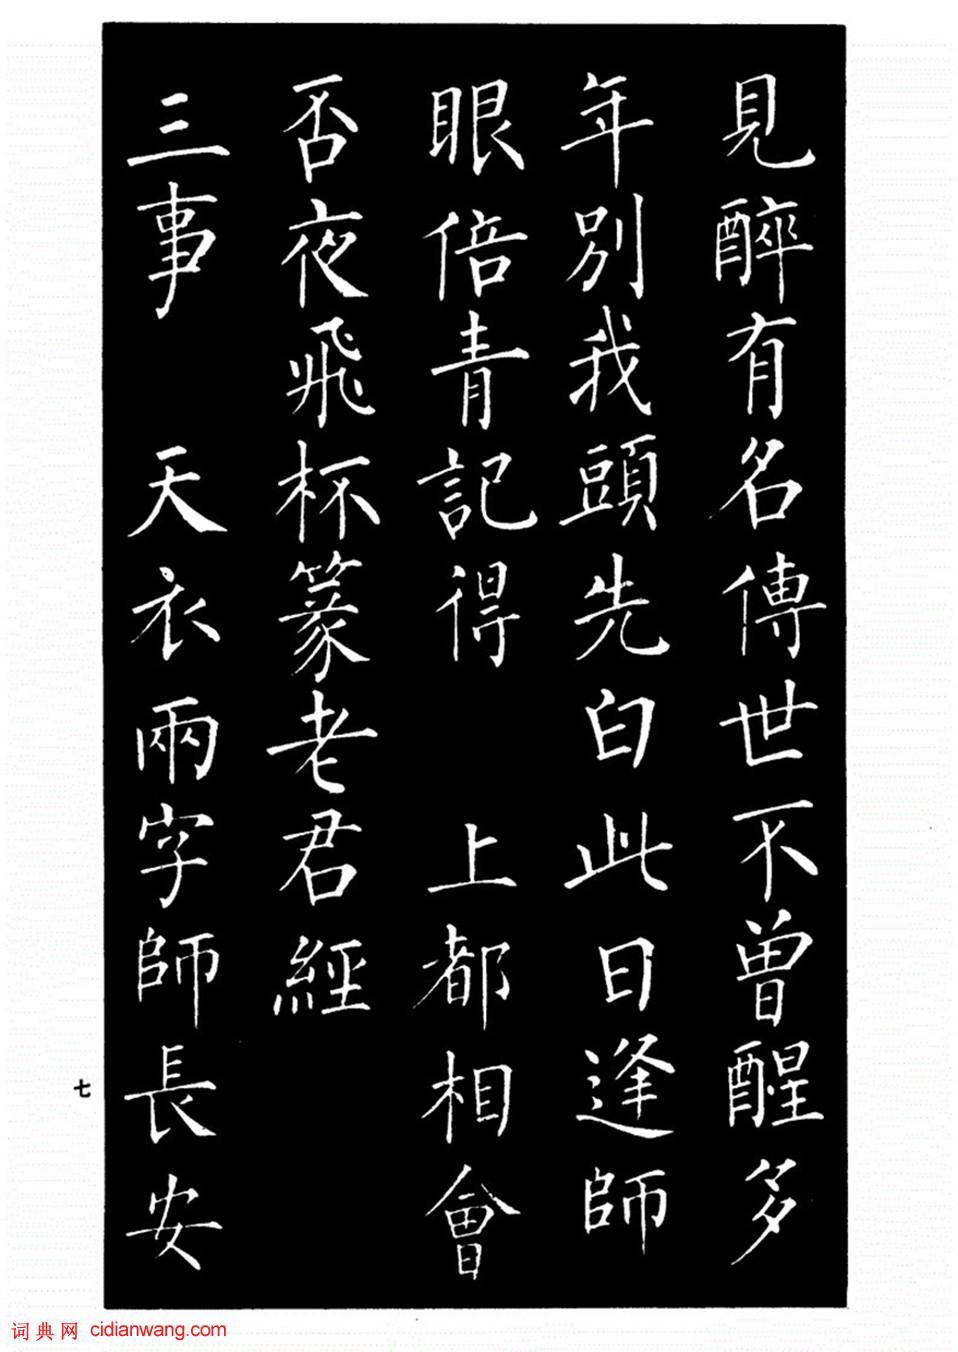 見醉有名傳世不曾醒多
年別我頭先白此日逢師
眼倍青記得 上都相會
否夜飛杯篆老君經
三事 天衣兩字師長安
七
词典网 cidianwang.com